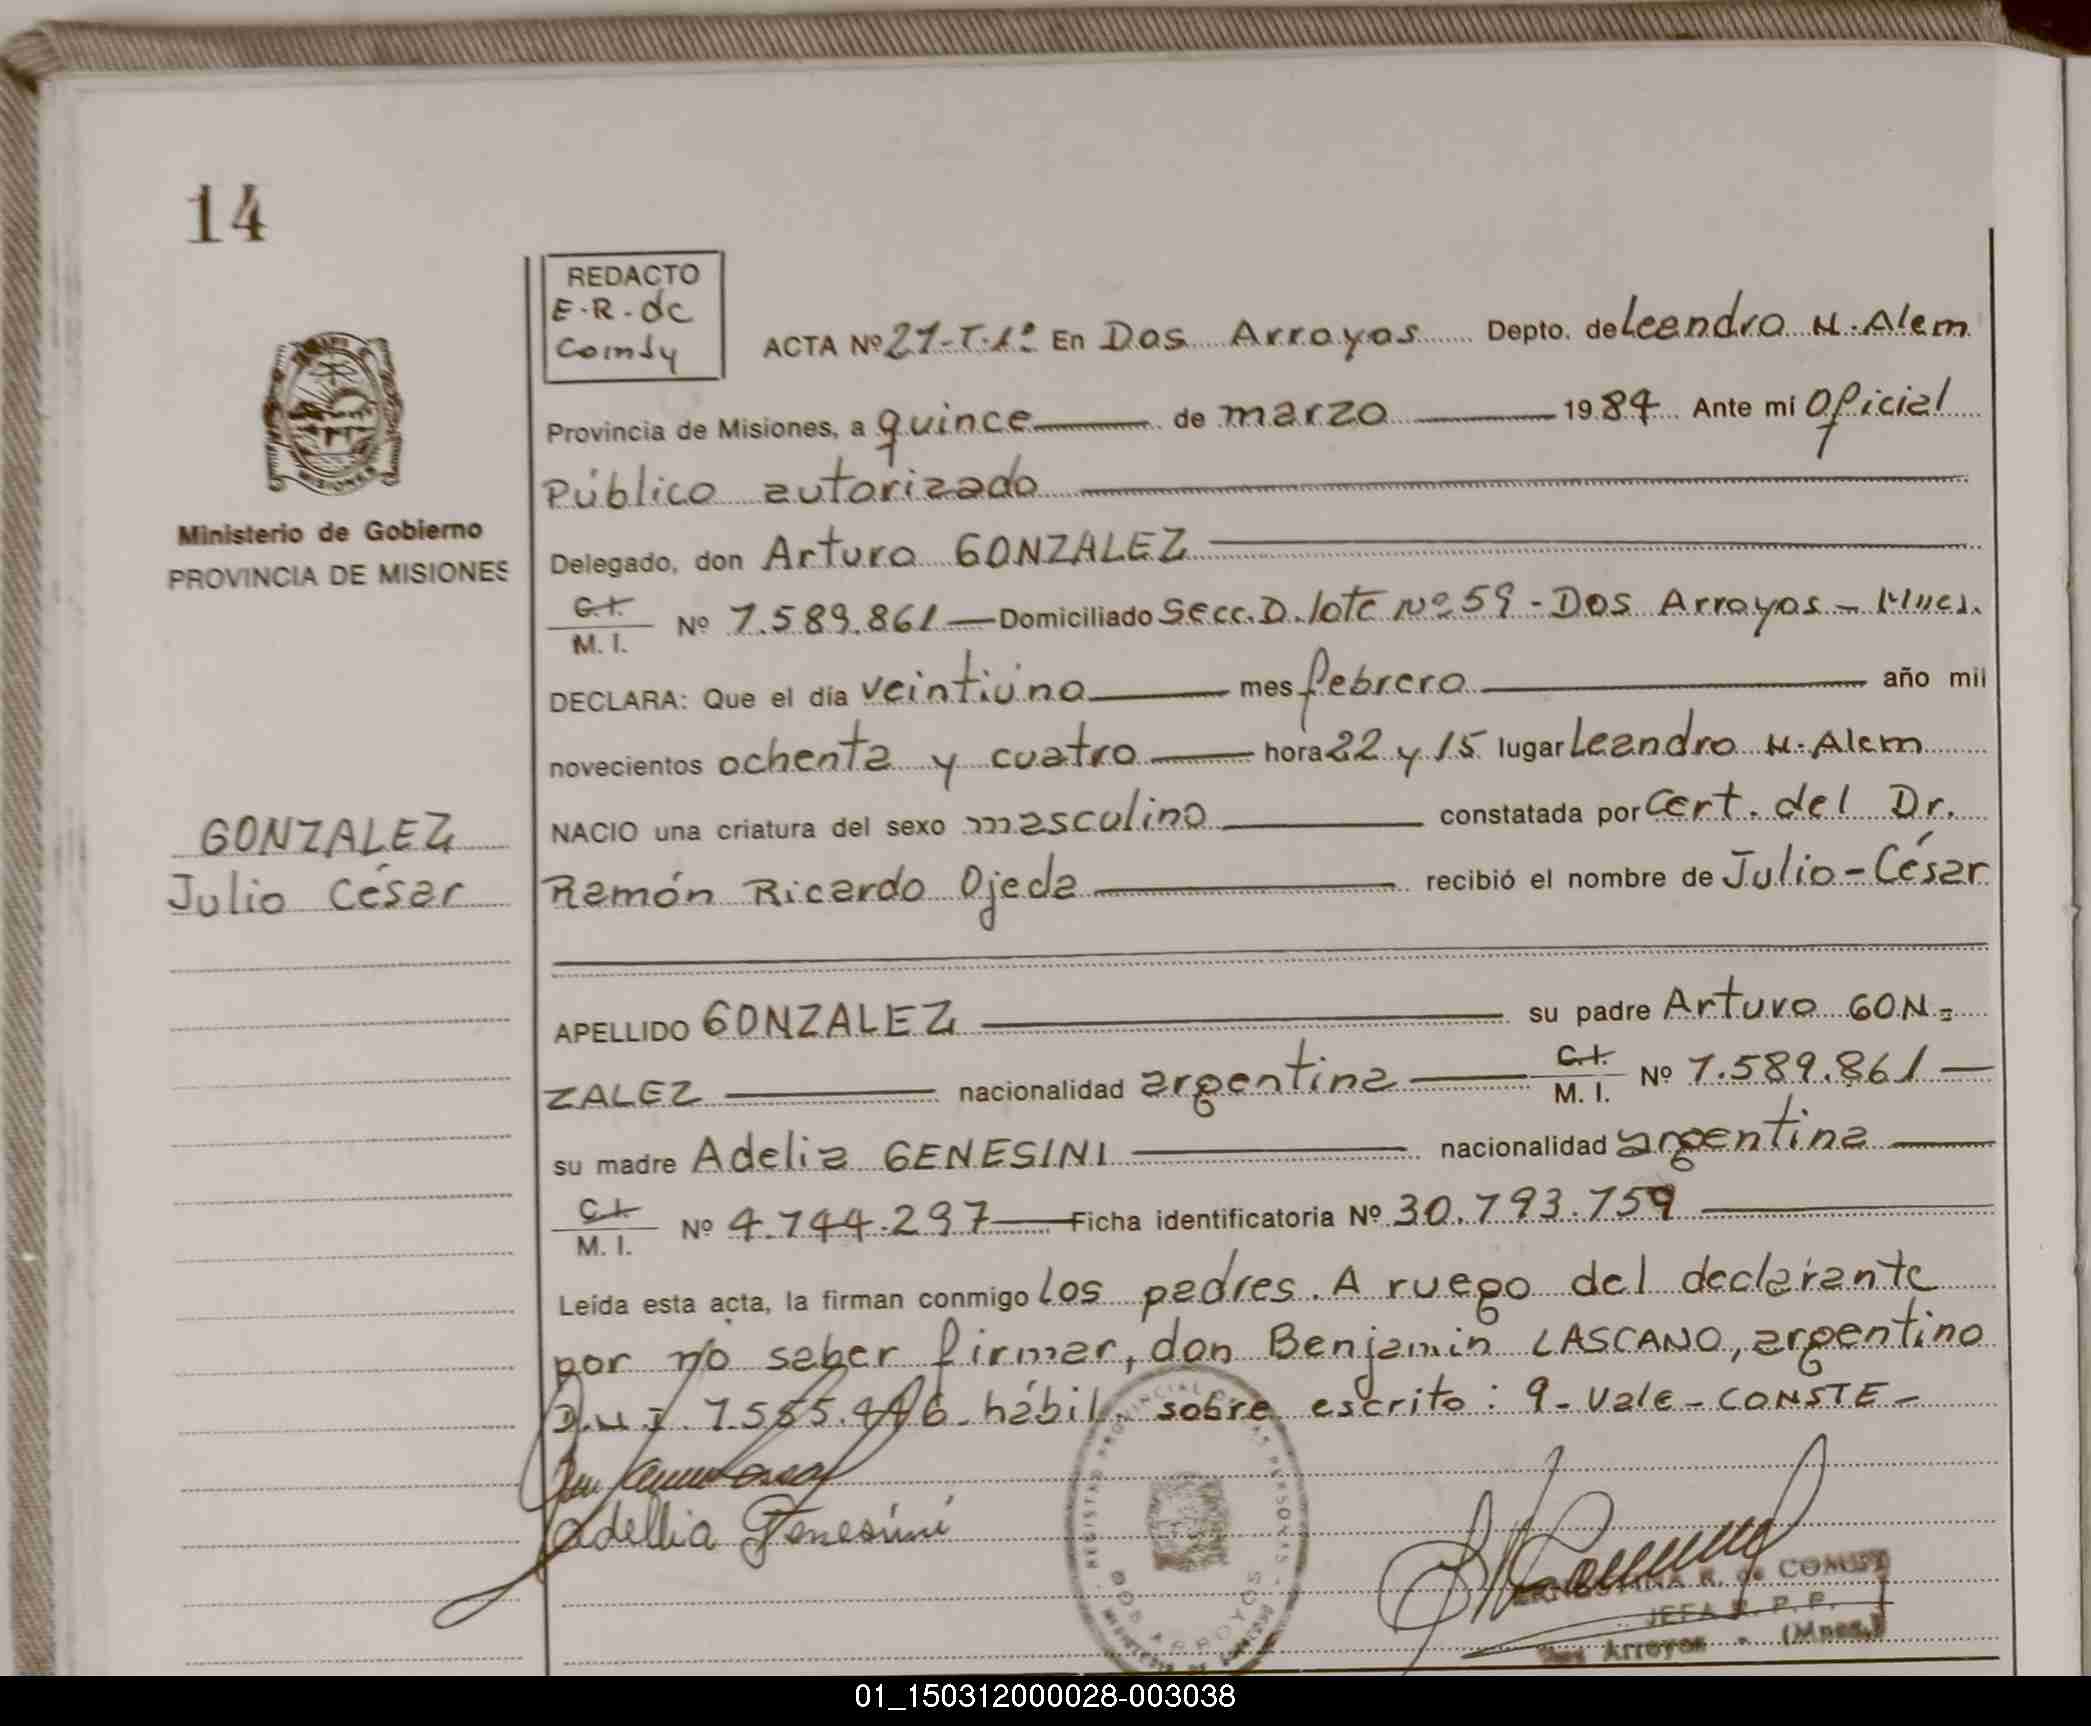 14
REDACTO
E.R. de
Comsy
ACTA Nº 27-T.1º En Dos Arroyos Depto. de Leandro N. Alem
Provincia de Misiones, a quince de marzo 1984 Ante mí Oficial
Público autorizado
Ministerio de Gobierno
PROVINCIA DE MISIONES
Delegado, don Arturo GONZALEZ
C.I.
M. I. Nº 7.589.861 Domiciliado Secc. D. lote Nº 59 - Dos Arroyos - Mnes.
DECLARA: Que el día veintiuno mes febrero año mil
novecientos ochenta y cuatro hora 22 y 15 lugar Leandro N. Alem
NACIO una criatura del sexo masculino constatada por Cert. del Dr.
Ramón Ricardo Ojeda recibió el nombre de Julio-César
GONZALEZ
Julio César
APELLIDO GONZALEZ su padre Arturo GON=
ZALEZ nacionalidad argentina C.I. M. I. Nº 7.589.861
su madre Adelia GENESINI nacionalidad argentina
C.I.
M. I. Nº 4.744.297 Ficha identificatoria Nº 30.793.759
Leída esta acta, la firman conmigo los padres. A ruego del declarante
por no saber firmar, don Benjamin LASCANO, argentino
D.N.I. 7.555.446 hábil. sobre escrito: 9 - Vale - CONSTE -
Adellia Genesini
REGISTRO PROVINCIAL DE LAS PERSONAS
DOS ARROYOS
R. de COMSY
JEFA R. P. P.
Dos Arroyos - (Mnes.)
01_150312000028-003038